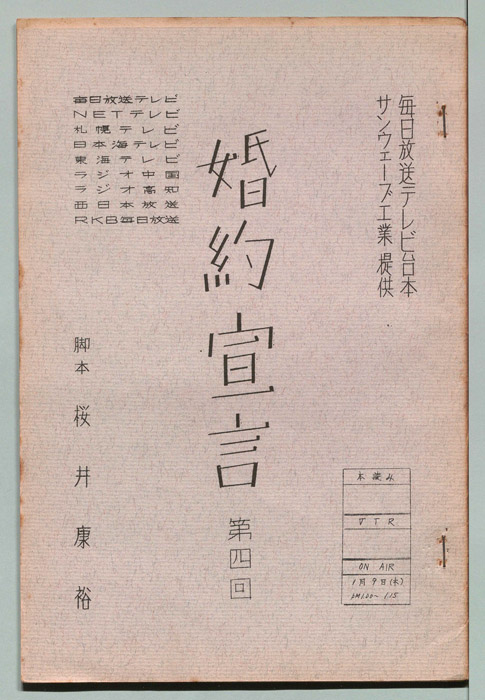 毎日放送テレビ台本
サンウェーブ工業 提供
婚約宣言
第四回
毎日放送テレビ
NETテレビ
札幌テレビ
日本海テレビ
東海テレビ
ラジオ中国
ラジオ高知
西日本放送
RKB毎日放送
脚本 桜井康裕
本読み
VTR
ON AIR
1月9日(木)
PM1.00~1.15